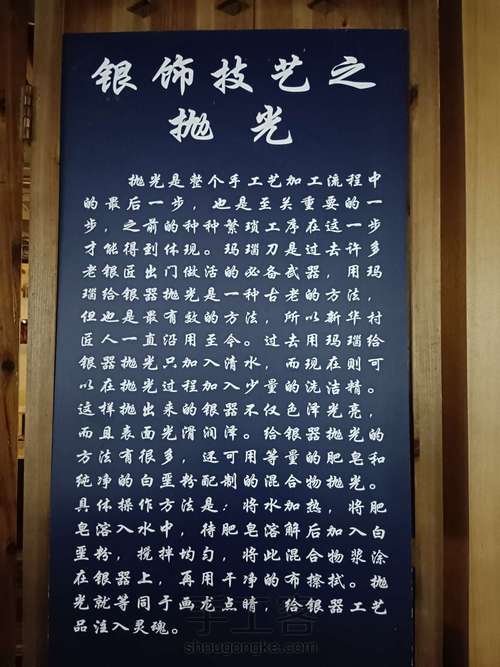 银饰技艺之
抛光
抛光是整个手工艺加工流程中
的最后一步，也是至关重要的一
步，之前的种种繁琐工序在这一步
才能得到体现。玛瑙刀是过去许多
老银匠出门做活的必备武器，用玛
瑙给银器抛光是一种古老的方法，
但也是最有效的方法，所以新华村
匠人一直沿用至今。过去用玛瑙给
银器抛光只加入清水，而现在则可
以在抛光过程加入少量的洗洁精。
这样抛出来的银器不仅色泽光亮，
而且表面光滑润泽。给银器抛光的
方法有很多，还可用等量的肥皂和
纯净的白垩粉配制的混合物抛光。
具体操作方法是：将水加热，将肥
皂溶入水中，待肥皂溶解后加入白
垩粉，搅拌均匀，将此混合物浆涂
在银器上，再用干净的布擦拭。抛
光就等同于画龙点睛，给银器工艺
品注入灵魂。
手工客
shougongke.com